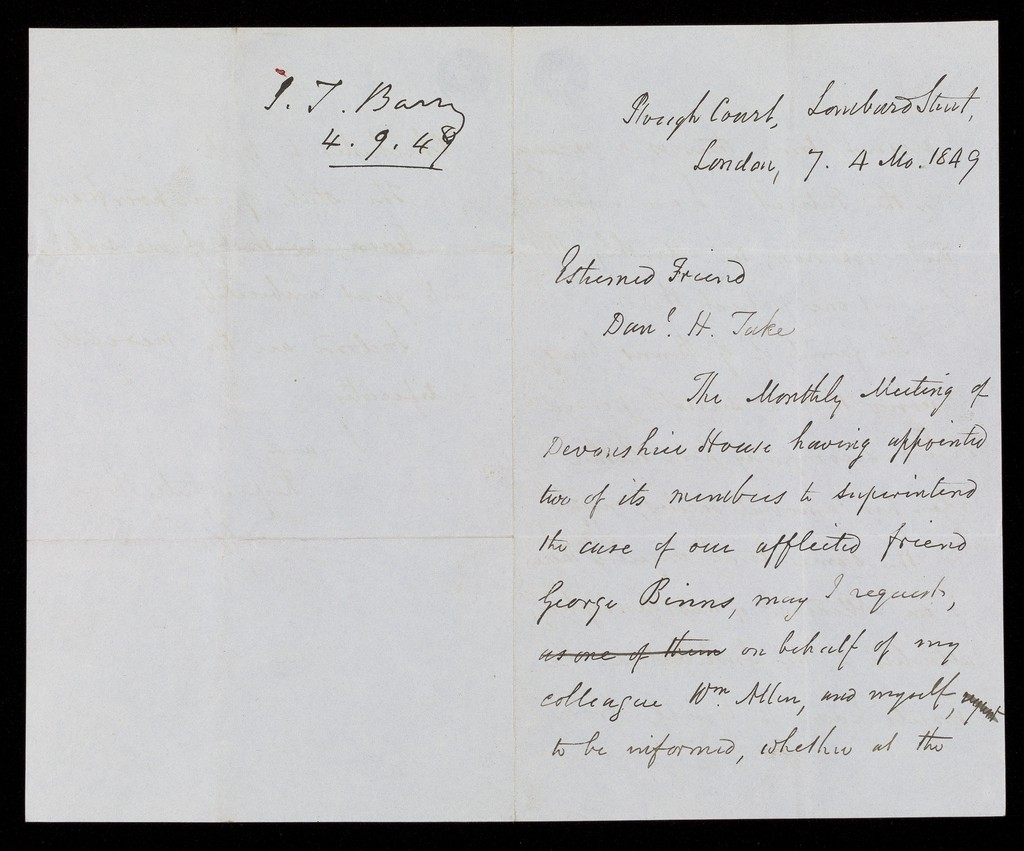 J. T. Barry
4. 9. 49
Plough Court, Lombard Street,
London, 7. 4 Mo. 1849
Esteemed Friend
Danl. H. Tuke
The Monthly Meeting of
Devonshire House having appointed
two of its members to superintend
the case of our afflicted friend
George Binns, may I request,
as one of them on behalf of my
colleague Wm. Allen, and myself,
to be informed, whether at the